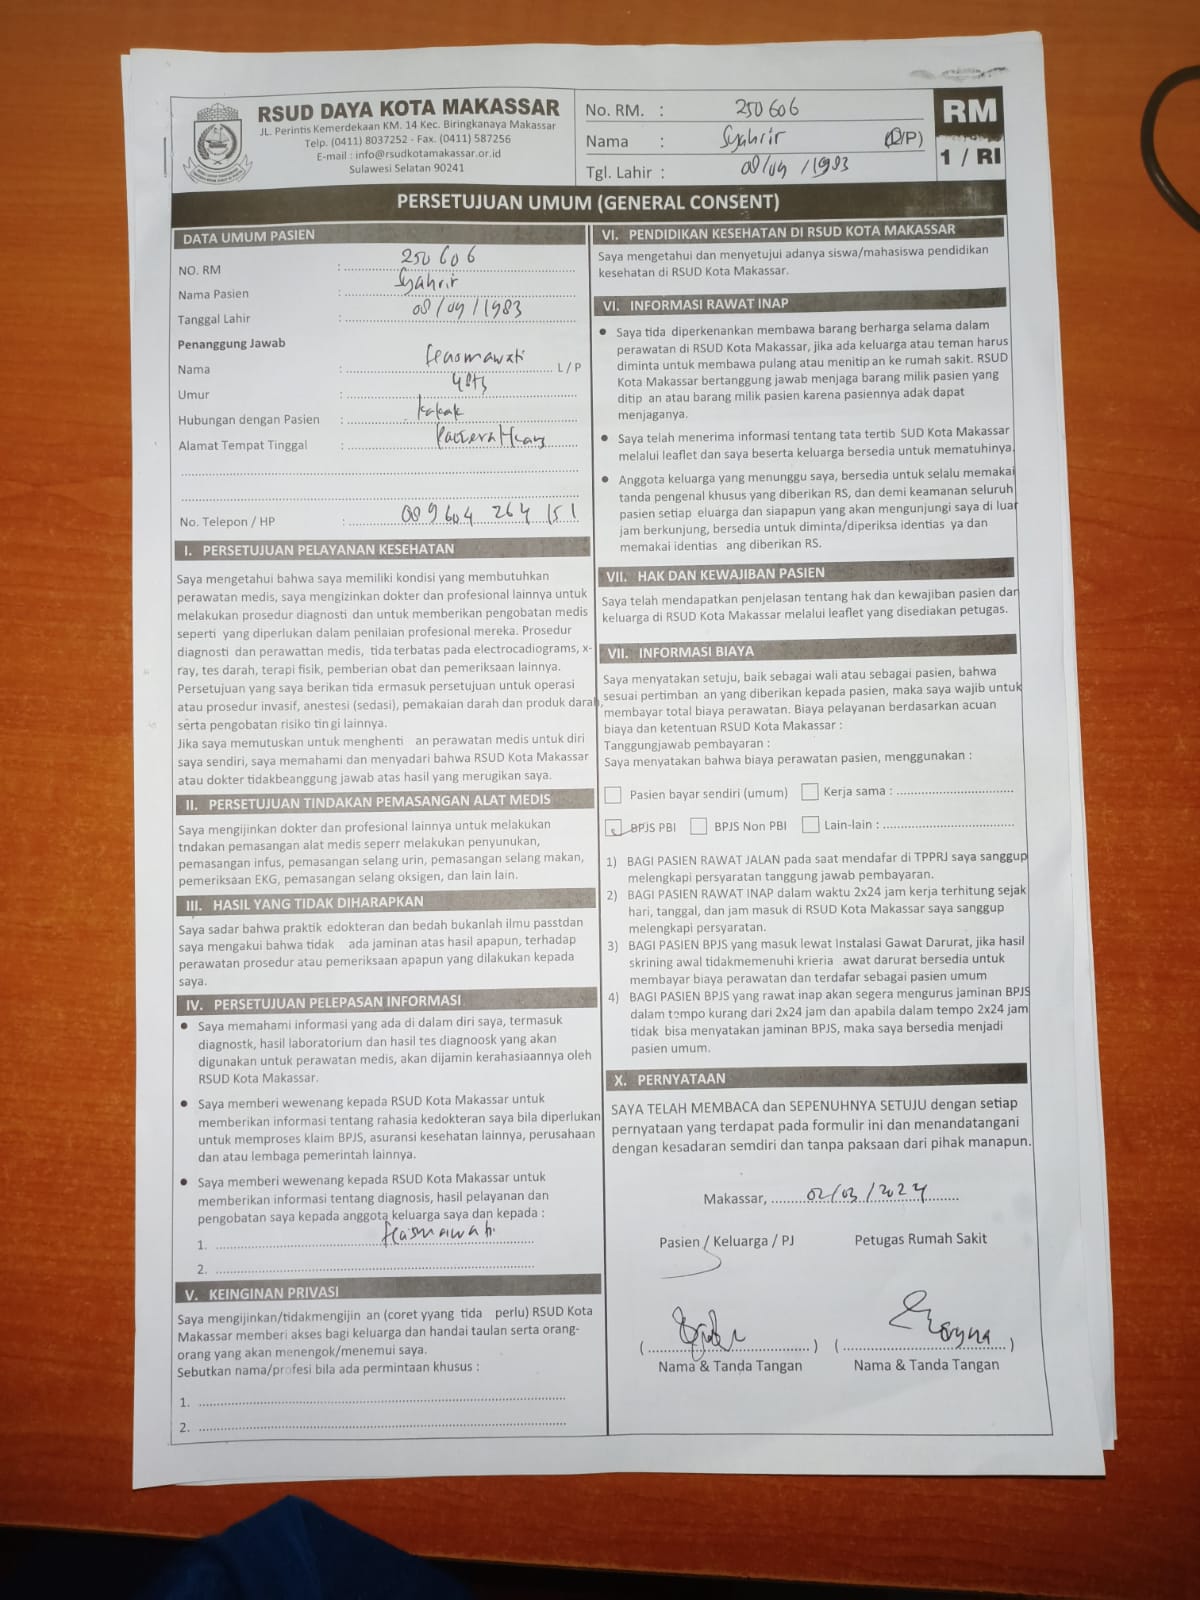 RSUD DAYA KOTA MAKASSAR
JL. Perintis Kemerdekaan KM. 14 Kec. Biringkanaya Makassar
Telp. (0411) 8037252 - Fax. (0411) 587256
E-mail : info@rsudkotamakassar.or.id
Sulawesi Selatan 90241
No. RM. : 250606
Nama : Syahrir (L/P)
Tgl. Lahir : 08/09/1983
RM
1 / RI
PERSETUJUAN UMUM (GENERAL CONSENT)
DATA UMUM PASIEN
NO. RM : 250606
Nama Pasien : Syahrir
Tanggal Lahir : 08/09/1983
Penanggung Jawab
Nama : Hasmawati L / P
Umur :
Hubungan dengan Pasien : kakak
Alamat Tempat Tinggal :
No. Telepon / HP : 089 604 264 151
I. PERSETUJUAN PELAYANAN KESEHATAN
Saya mengetahui bahwa saya memiliki kondisi yang membutuhkan
perawatan medis, saya mengizinkan dokter dan profesional lainnya untuk
melakukan prosedur diagnosti dan untuk memberikan pengobatan medis
seperti yang diperlukan dalam penilaian profesional mereka. Prosedur
diagnosti dan perawattan medis, tida terbatas pada electrocadiograms, x-
ray, tes darah, terapi fisik, pemberian obat dan pemeriksaan lainnya.
Persetujuan yang saya berikan tida ermasuk persetujuan untuk operasi
atau prosedur invasif, anestesi (sedasi), pemakaian darah dan produk darah,
serta pengobatan risiko tin gi lainnya.
Jika saya memutuskan untuk menghenti an perawatan medis untuk diri
saya sendiri, saya memahami dan menyadari bahwa RSUD Kota Makassar
atau dokter tidakbeanggung jawab atas hasil yang merugikan saya.
II. PERSETUJUAN TINDAKAN PEMASANGAN ALAT MEDIS
Saya mengijinkan dokter dan profesional lainnya untuk melakukan
tndakan pemasangan alat medis seperr melakukan penyunukan,
pemasangan infus, pemasangan selang urin, pemasangan selang makan,
pemeriksaan EKG, pemasangan selang oksigen, dan lain lain.
III. HASIL YANG TIDAK DIHARAPKAN
Saya sadar bahwa praktik edokteran dan bedah bukanlah ilmu passtdan
saya mengakui bahwa tidak ada jaminan atas hasil apapun, terhadap
perawatan prosedur atau pemeriksaan apapun yang dilakukan kepada
saya.
IV. PERSETUJUAN PELEPASAN INFORMASI
● Saya memahami informasi yang ada di dalam diri saya, termasuk
diagnostk, hasil laboratorium dan hasil tes diagnoosk yang akan
digunakan untuk perawatan medis, akan dijamin kerahasiaannya oleh
RSUD Kota Makassar.
● Saya memberi wewenang kepada RSUD Kota Makassar untuk
memberikan informasi tentang rahasia kedokteran saya bila diperlukan
untuk memproses klaim BPJS, asuransi kesehatan lainnya, perusahaan
dan atau lembaga pemerintah lainnya.
● Saya memberi wewenang kepada RSUD Kota Makassar untuk
memberikan informasi tentang diagnosis, hasil pelayanan dan
pengobatan saya kepada anggota keluarga saya dan kepada :
1. Hasmawati
2.
V. KEINGINAN PRIVASI
Saya mengijinkan/tidakmengijin an (coret yyang tida perlu) RSUD Kota
Makassar memberi akses bagi keluarga dan handai taulan serta orang-
orang yang akan menengok/menemui saya.
Sebutkan nama/profesi bila ada permintaan khusus :
1.
2.
VI. PENDIDIKAN KESEHATAN DI RSUD KOTA MAKASSAR
Saya mengetahui dan menyetujui adanya siswa/mahasiswa pendidikan
kesehatan di RSUD Kota Makassar.
VI. INFORMASI RAWAT INAP
● Saya tida diperkenankan membawa barang berharga selama dalam
perawatan di RSUD Kota Makassar, jika ada keluarga atau teman harus
diminta untuk membawa pulang atau menitip an ke rumah sakit. RSUD
Kota Makassar bertanggung jawab menjaga barang milik pasien yang
ditip an atau barang milik pasien karena pasiennya adak dapat
menjaganya.
● Saya telah menerima informasi tentang tata tertib SUD Kota Makassar
melalui leaflet dan saya beserta keluarga bersedia untuk mematuhinya.
● Anggota keluarga yang menunggu saya, bersedia untuk selalu memakai
tanda pengenal khusus yang diberikan RS, dan demi keamanan seluruh
pasien setiap eluarga dan siapapun yang akan mengunjungi saya di luar
jam berkunjung, bersedia untuk diminta/diperiksa identias ya dan
memakai identias ang diberikan RS.
VII. HAK DAN KEWAJIBAN PASIEN
Saya telah mendapatkan penjelasan tentang hak dan kewajiban pasien dan
keluarga di RSUD Kota Makassar melalui leaflet yang disediakan petugas.
VII. INFORMASI BIAYA
Saya menyatakan setuju, baik sebagai wali atau sebagai pasien, bahwa
sesuai pertimban an yang diberikan kepada pasien, maka saya wajib untuk
membayar total biaya perawatan. Biaya pelayanan berdasarkan acuan
biaya dan ketentuan RSUD Kota Makassar :
Tanggungjawab pembayaran :
Saya menyatakan bahwa biaya perawatan pasien, menggunakan :
Pasien bayar sendiri (umum) Kerja sama :
BPJS PBI BPJS Non PBI Lain-lain :
1) BAGI PASIEN RAWAT JALAN pada saat mendafar di TPPRJ saya sanggup
melengkapi persyaratan tanggung jawab pembayaran.
2) BAGI PASIEN RAWAT INAP dalam waktu 2x24 jam kerja terhitung sejak
hari, tanggal, dan jam masuk di RSUD Kota Makassar saya sanggup
melengkapi persyaratan.
3) BAGI PASIEN BPJS yang masuk lewat Instalasi Gawat Darurat, jika hasil
skrining awal tidakmemenuhi krieria awat darurat bersedia untuk
membayar biaya perawatan dan terdafar sebagai pasien umum
4) BAGI PASIEN BPJS yang rawat inap akan segera mengurus jaminan BPJS
dalam tempo kurang dari 2x24 jam dan apabila dalam tempo 2x24 jam
tidak bisa menyatakan jaminan BPJS, maka saya bersedia menjadi
pasien umum.
X. PERNYATAAN
SAYA TELAH MEMBACA dan SEPENUHNYA SETUJU dengan setiap
pernyataan yang terdapat pada formulir ini dan menandatangani
dengan kesadaran semdiri dan tanpa paksaan dari pihak manapun.
Makassar, 02/03/2024
Pasien / Keluarga / PJ Petugas Rumah Sakit
Nama & Tanda Tangan Nama & Tanda Tangan